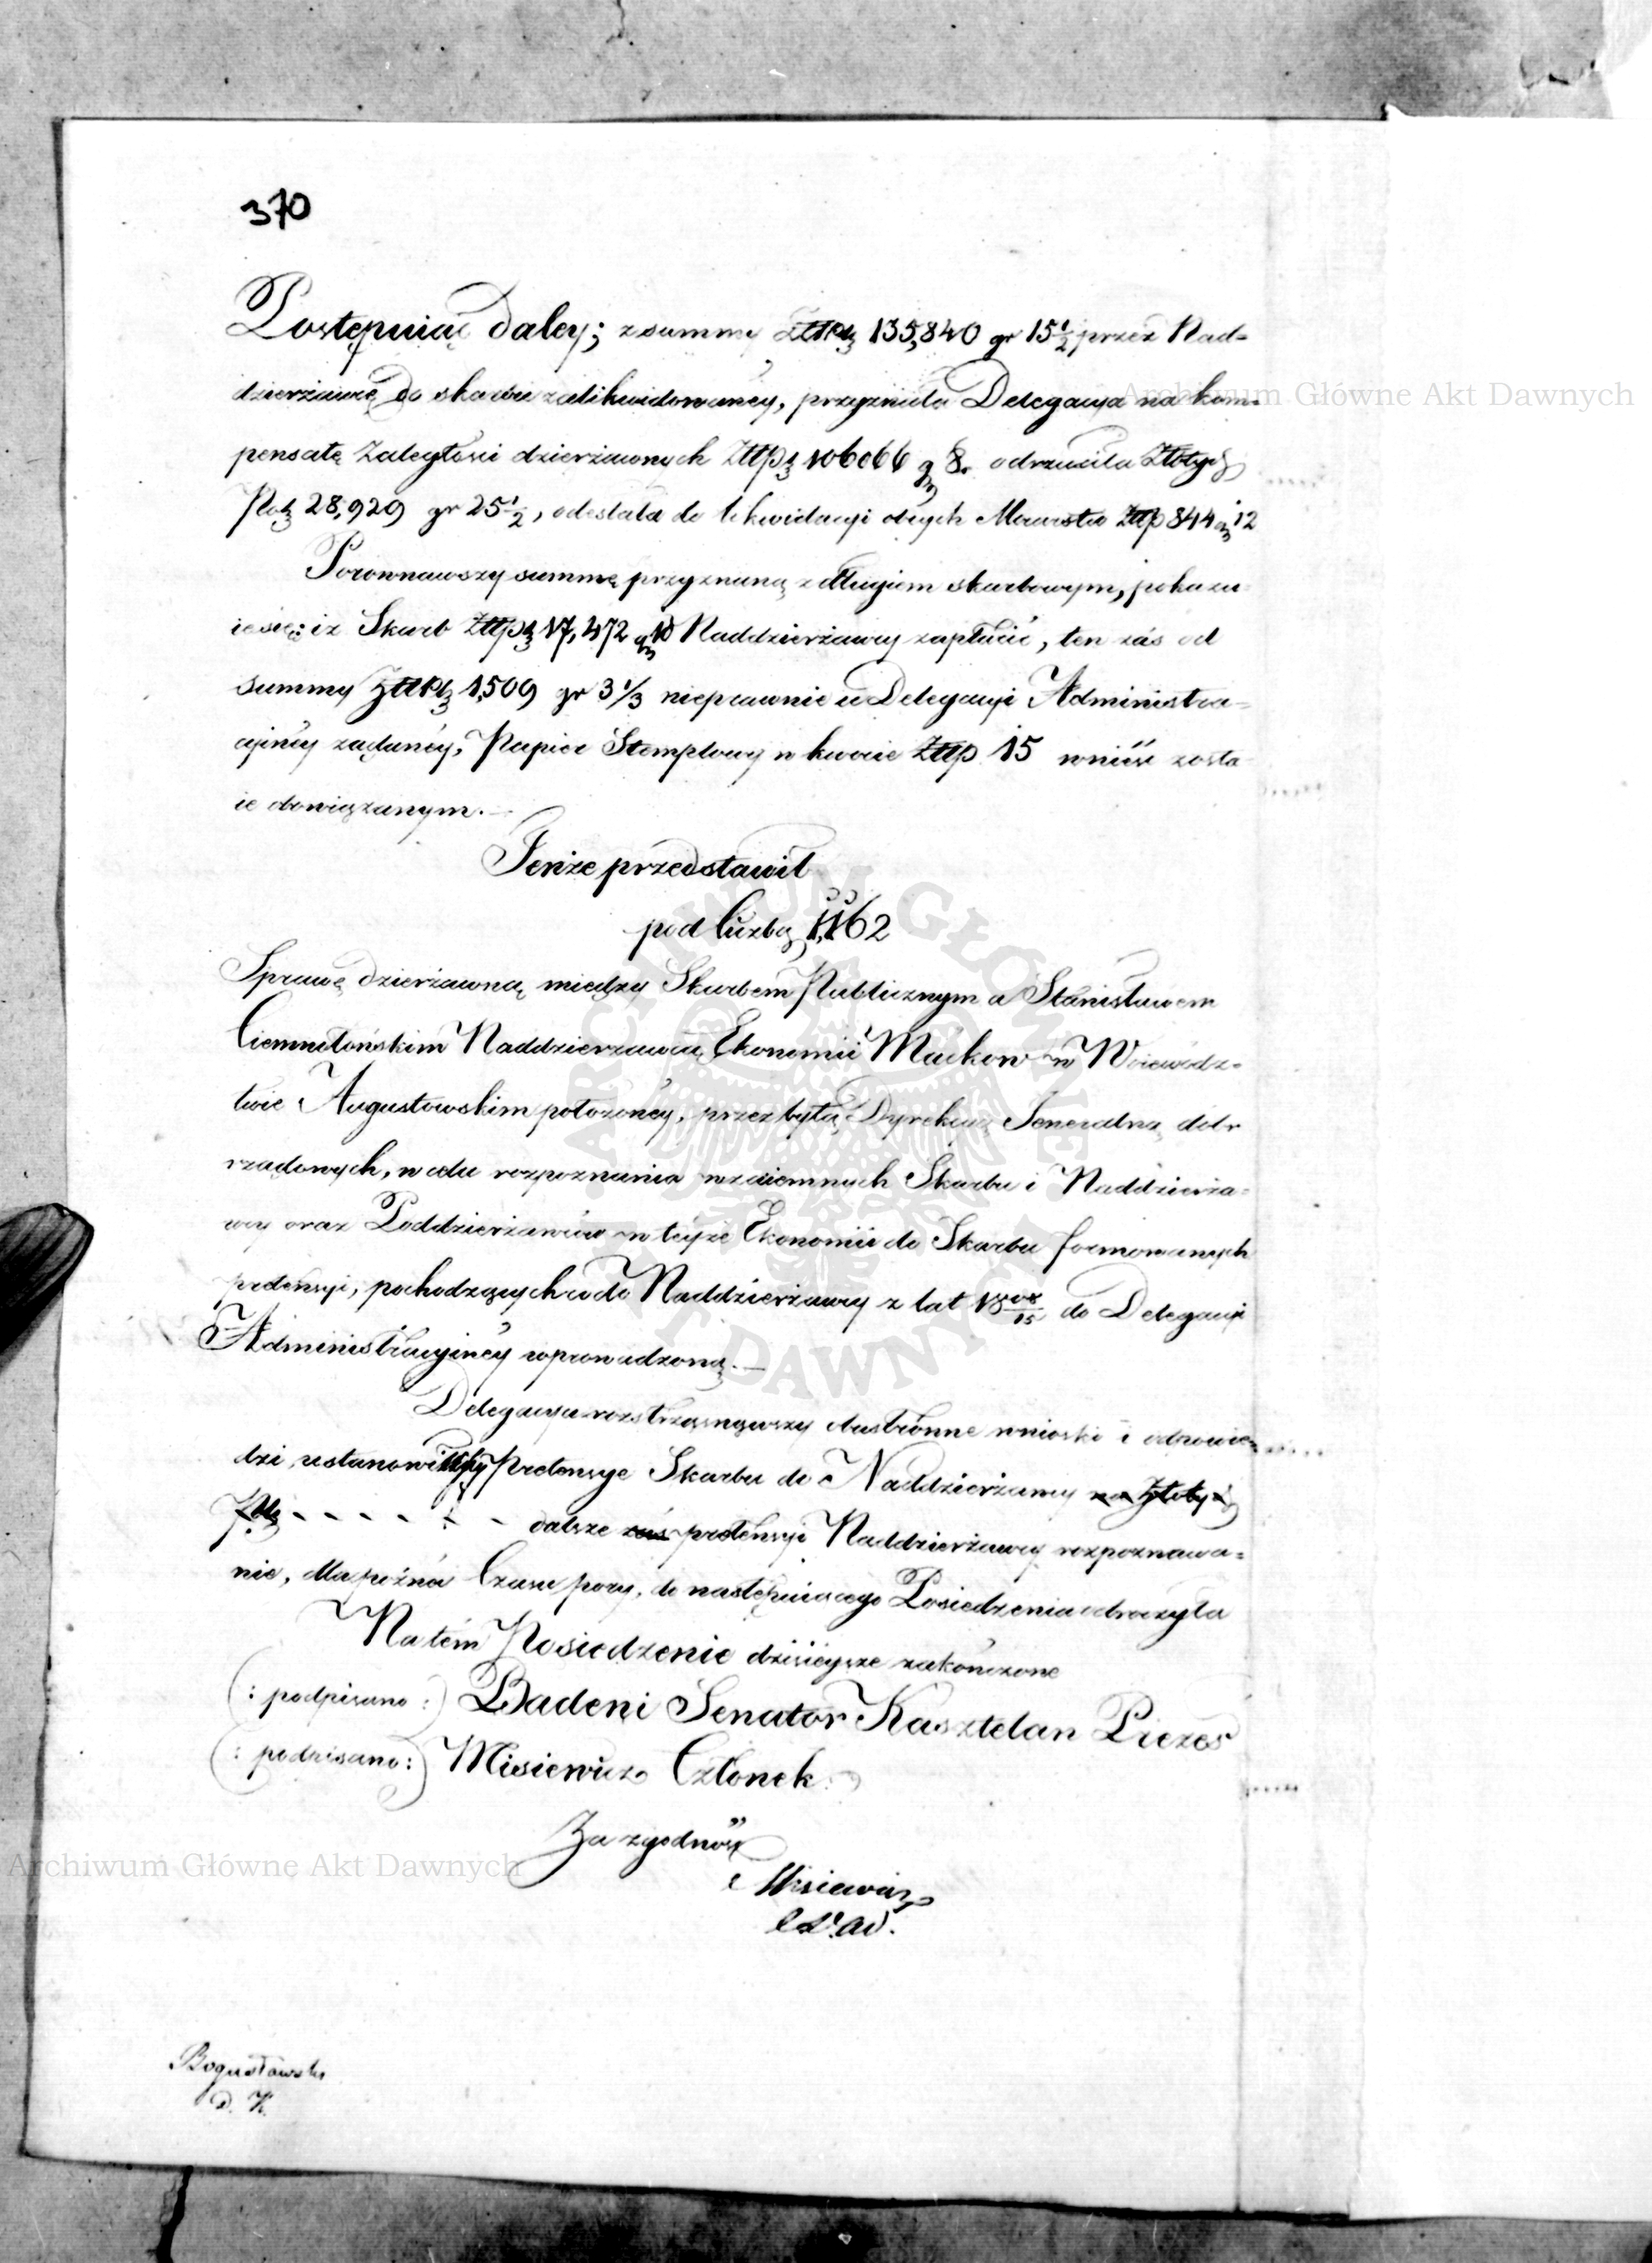 370
Postępuiąc daley; z summy Złtpłz 135,840 gr 15½ przez Nad=
dzierżawcę do skarbu zalikwidowaney, przyznała Delegacya na kom=
pensatę Zaległości dzierżawnych Złtpłz 106066 gr 8. odrzuciła Złotych
Polz 28,929 gr 25½, odesłała do likwidacyi obcych Mocarstw Złtp 844 gr 12
Porównawszy summę przyznaną z długiem skarbowym, pokazu-
ie się: iż Skarb Złtpłz 17,472 gr 10 Naddzierżawcy zapłacić, ten zaś od
Summy Złtpłz 1,509 gr 3 1/3 nieprawnie u Delegacyi Administra=
cyiney żądaney, Papier Stemplowy w kwocie Złtp 15 wnieść zosta
ie obowiązanym.—
Tenże przedstawił
pod liczbą 1,162
Sprawę dzierżawną między Skarbem Publicznym a Stanisławem
Ciemnołońskim Naddzierżawcą Ekonomii Maćkow w Woiewódz=
twie Augustowskim położoney, przez byłą Dyrekcyą Jeneralną dóbr
rządowych, w celu rozpoznania wzaiemnych Skarbu i Naddzierża=
wcy oraz Poddzierżawców w teyże Ekonomii do Skarbu formowanych
pretensyi, pochodzących co do Naddzierżawcy z lat 1808/15 do Delegacyi
Administracyiney wprowadzoną.—
Delegacya rozstrząsnąwszy obustronne wnioski i odpowie=
dzi, ustanowiwszy Pretensye Skarbu do Naddzierżawcy na Złotych
Polz - - - - - - - dalsze zaś pretensyi Naddzierżawcy rozpoznawa=
nie, dla późnéy Czasu pory, do następuiącego Posiedzenia odroczyła
Na tém Posiedzenie dzisieysze zakończone
(: podpisano :) Badeni Senator Kasztelan Prezes
(: podpisano :) Misiewicz Członek
Za zgodność
Misiewicz
Bogusławski
Archiwum Główne Akt Dawnych
Archiwum Główne Akt Dawnych
ARCHIWUM GŁÓWNE AKT DAWNYCH